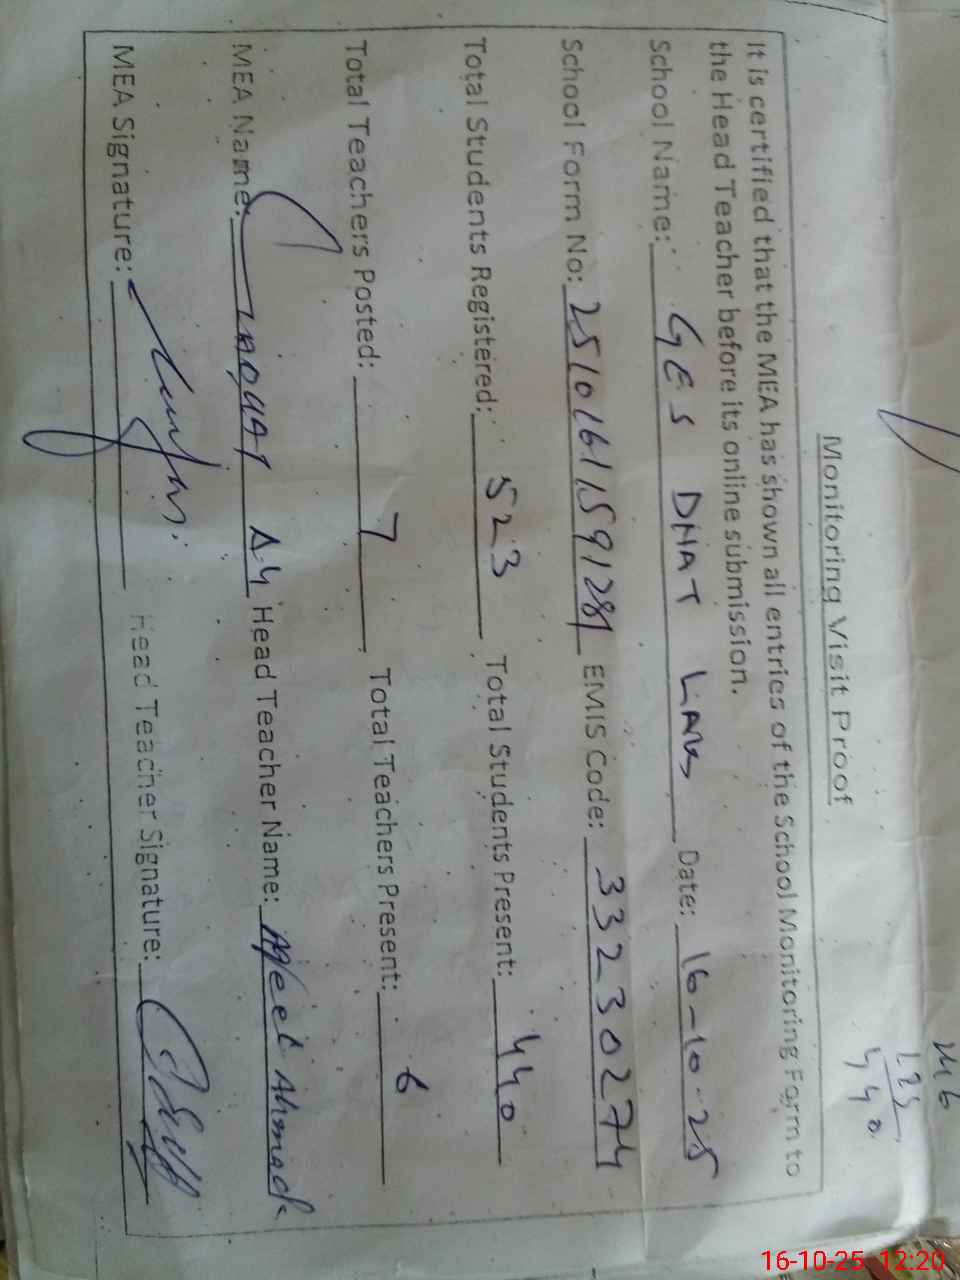 Monitoring Visit Proof
It is certified that the MEA has shown all entries of the School Monitoring Form to
the Head Teacher before its online submission.
School Name: GES DHAT Date: 16-10-25
School Form No: 25101611591281 EMIS Code: 33230274
Total Students Registered: 523 Total Students Present: 440
Total Teachers Posted: 7 Total Teachers Present: 6
MEA Name: Head Teacher Name: Ahmad
MEA Signature: Head Teacher Signature:
440
16-10-25 12:20